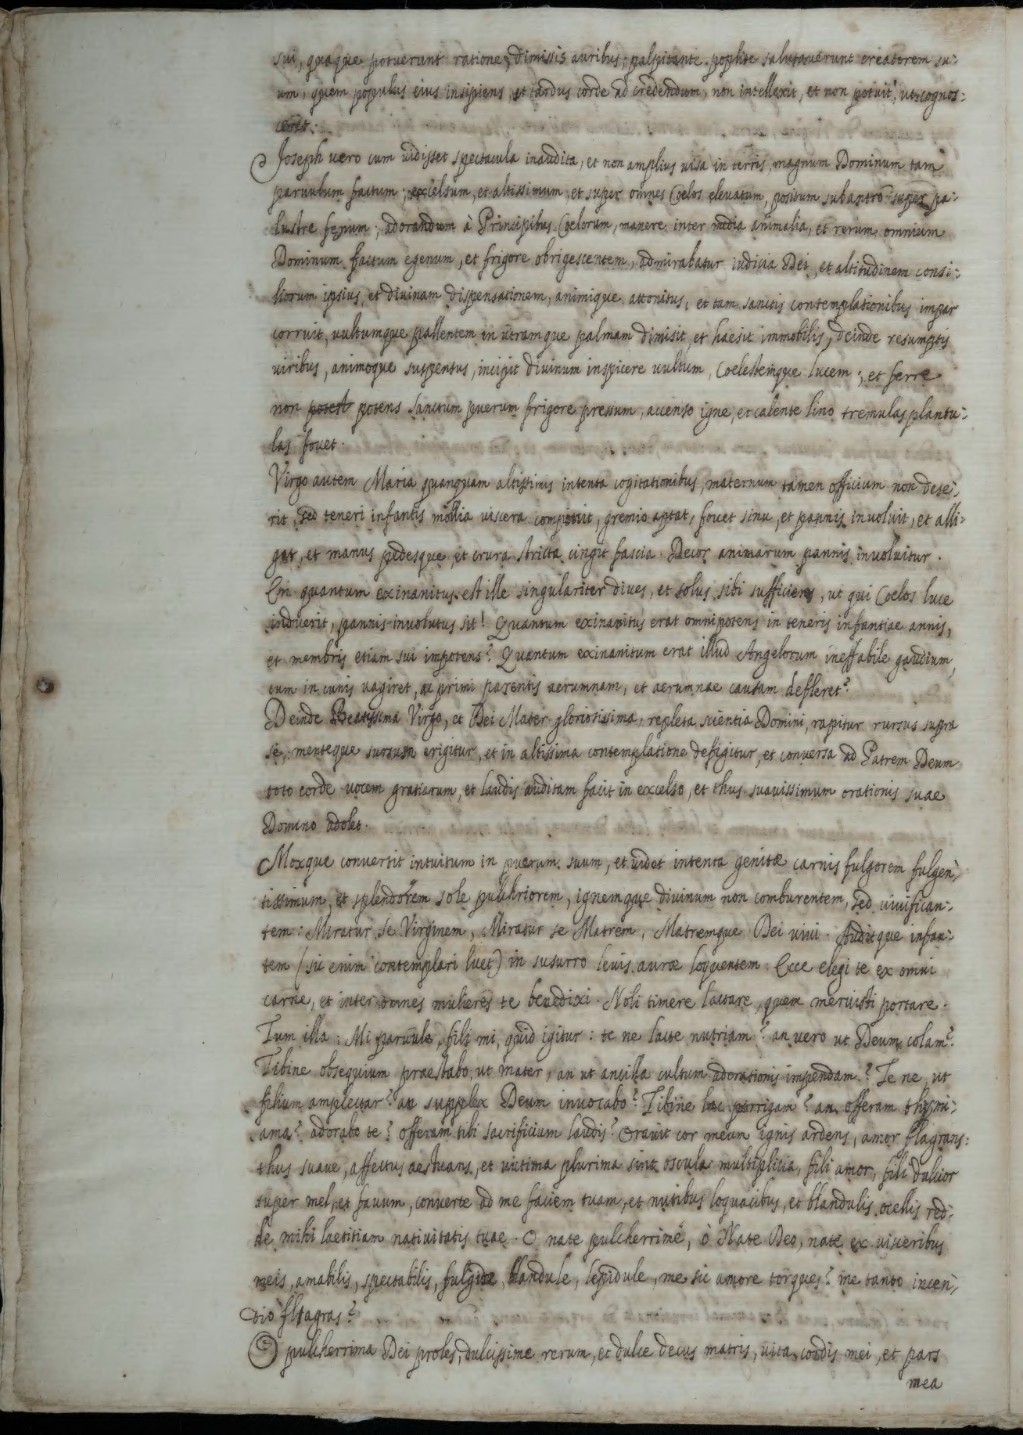 sui, quaque potuerunt ratione, dimissis auribus, palpitante poplite salutaverunt creatorem su-
um, quem populus eius insipiens et tardus corde ad credendum, non intellexit, et non potuit, ut cognos-
ceret.
Joseph vero cum vidisset spectacula inaudita, et non amplius visa in terris, magnum Dominum tam
parvulum factum, excelsum, et altissimum, et super omnes Coelos elevatum, positum sub antro super pa-
lustre fenum, adorandum à Principibus Coelorum, manere inter media animalia, et rerum omnium
Dominum factum egenum, et frigore obrigescentem, admirabatur iudicia Dei, et altitudinem consi-
liorum ipsius, et divinam dispensationem, animique attonitus, et tam sanctis contemplationibus impar
corruit, vultumque pallentem in utramque palmam dimisit, et haesit immobilis, deinde resumptis
viribus, animoque suspensus, incipit divinum inspicere vultum, Coelestemque lucem, et ferre
non potens Sanctum puerum frigore pressum, accenso igne, et calente lino tremulas plantu-
las fovet.
Virgo autem Maria quanquam altissimis intenta cogitationibus, maternum tamen officium non dese-
rit, sed teneri infantis mollia viscera componit, gremio aptat, fovet sinu, et pannis involvit, et alli-
gat, et manus pedesque, et crura stricta cingit fascia. Decor animarum pannis involvitur.
En quantum exinanitus est ille singulariter dives, et solus sibi sufficiens, ut qui Coelos luce
induerit, pannis involutus sit! Quantum exinanitus erat omnipotens in teneris infantiae annis,
et membris etiam sui impotens? Quantum exinanitum erat illud Angelorum ineffabile gaudium,
cum in cunis vagiret, ac primi parentis aerumnam, et aerumnae causam defleret?
Deinde Beatissima Virgo, et Dei Mater gloriosissima, repleta scientia Domini, rapitur rursus supra
se, menteque sursum erigitur, et in altissima contemplatione defigitur, et conversa ad Patrem Deum
toto corde vocem gratiarum, et laudis auditam facit in excelso, et thus suavissimum orationis suae
Domino adolet.
Moxque convertit intuitum in puerum suum, et videt intenta genitae carnis fulgorem fulgen-
tissimum, et splendorem sole pulchriorem, ignemque divinum non comburentem, sed vivifican-
tem: Miratur se Virginem, Miratur se Matrem, Matremque Dei vivi. Auditque infan-
tem (sic enim contemplari licet) in susurro levis aurae loquentem. Ecce elegi te ex omni
carne, et inter omnes mulieres te benedixi. Noli timere lactare, quem meruisti portare.
Tum illa: Mi parvule, fili mi, quid igitur: te ne lacte nutriam? an vero ut Deum colam?
Tibine obsequium praestabo, ut mater, an ut ancilla cultum adorationis impendam? Te ne, ut
filium amplectar? an supplex Deum invocabo? Tibine lac porrigam? an offeram thymi-
ama? adorabo te? offeram tibi sacrificium laudis? cor meum ignis ardens, amor flagrans:
thus suave, affectus aestuans, et victima plurima sint oscula multiplicia, fili amor, fili dulcior
super mel, et favum, converte ad me faciem tuam, et nutibus loquacibus, et blandulis ocellis red-
de mihi laetitiam nativitatis tuae. O nate pulcherrime, ò Nate Deo, nate ex visceribus
meis, amabilis, spectabilis, fulgide, blandule, lepidule, me sic amore torques? me tanto incen-
dio flagras?
O pulcherrima Dei proles, dulcissime rerum, et dulce decus matris, vita cordis mei, et pars
mea